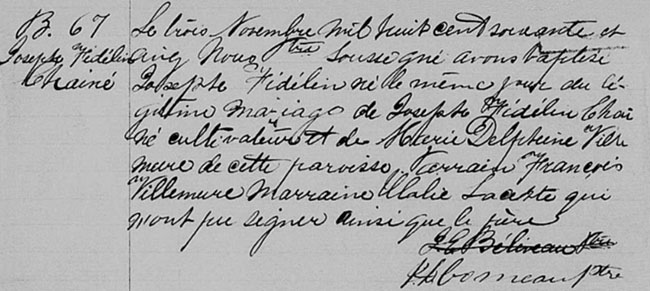 B. 67
Joseph Fidélin
Chainé
Le trois Novembre mil huit cent soixante et
cinq Nous Ptre Soussigné avons baptisé
Joseph Fidélin né le même jour du lé-
gitime mariage de Joseph Fidélin Chai
né cultivateur et de Marie Delphine Ville
mure de cette paroisse. Parrain François
Villemure Marraine Ulalie Lacerte qui
n'ont pu signer ainsi que le père
Béliveau Ptre
Comeau Ptre